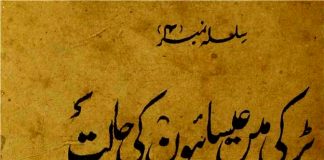 سلسلہ نمبر (۳)
ٹرکی میں عیسائیوں کی حالت